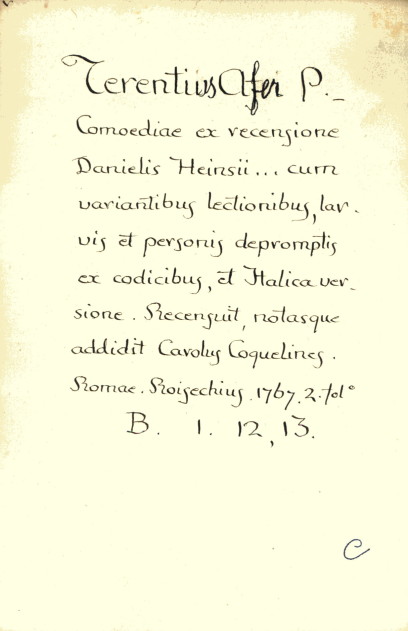 Terentius Afer P._
Comoediae ex recensione
Danielis Heinsii... cum
variantibus lectionibus, lar-
vis et personis depromptis
ex codicibus, et Italica ver-
sione. Recensuit, notasque
addidit Carolus Coquelines.
Romae. Roisechius. 1767. 2. fol°
B. 1. 12, 13.
C